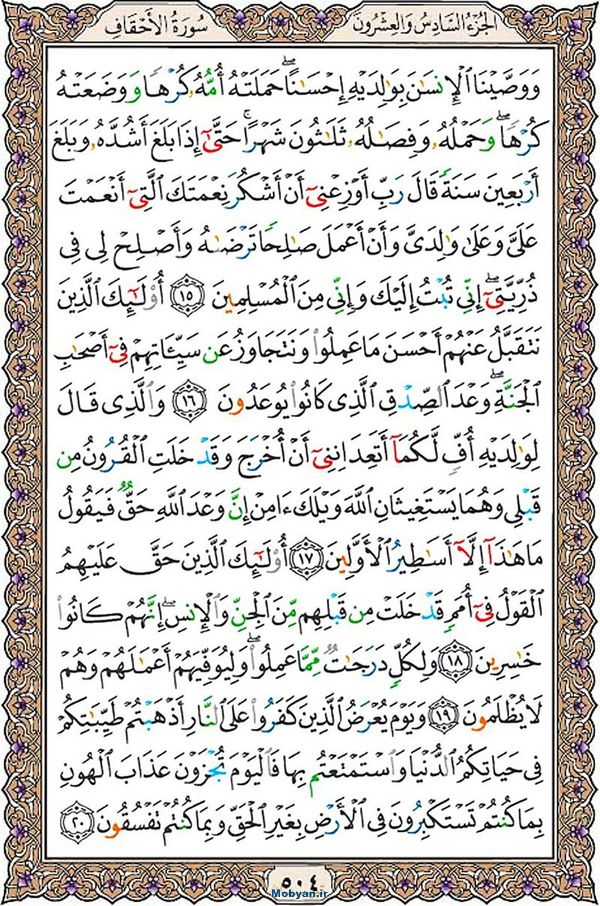 الجزء السادس والعشرون
سورة الأحقاف
وَوَصَّيْنَا ٱلْإِنسَٰنَ بِوَٰلِدَيْهِ إِحْسَٰنًا ۖ حَمَلَتْهُ أُمُّهُۥ كُرْهًا وَوَضَعَتْهُ
كُرْهًا ۖ وَحَمْلُهُۥ وَفِصَٰلُهُۥ ثَلَٰثُونَ شَهْرًا ۚ حَتَّىٰٓ إِذَا بَلَغَ أَشُدَّهُۥ وَبَلَغَ
أَرْبَعِينَ سَنَةً قَالَ رَبِّ أَوْزِعْنِىٓ أَنْ أَشْكُرَ نِعْمَتَكَ ٱلَّتِىٓ أَنْعَمْتَ
عَلَىَّ وَعَلَىٰ وَٰلِدَىَّ وَأَنْ أَعْمَلَ صَٰلِحًا تَرْضَىٰهُ وَأَصْلِحْ لِى فِى
ذُرِّيَّتِىٓ ۖ إِنِّى تُبْتُ إِلَيْكَ وَإِنِّى مِنَ ٱلْمُسْلِمِينَ ١٥ أُو۟لَٰٓئِكَ ٱلَّذِينَ
نَتَقَبَّلُ عَنْهُمْ أَحْسَنَ مَا عَمِلُوا۟ وَنَتَجَاوَزُ عَن سَيِّـَٔاتِهِمْ فِىٓ أَصْحَٰبِ
ٱلْجَنَّةِ ۖ وَعْدَ ٱلصِّدْقِ ٱلَّذِى كَانُوا۟ يُوعَدُونَ ١٦ وَٱلَّذِى قَالَ
لِوَٰلِدَيْهِ أُفٍّ لَّكُمَآ أَتَعِدَانِنِىٓ أَنْ أُخْرَجَ وَقَدْ خَلَتِ ٱلْقُرُونُ مِن
قَبْلِى وَهُمَا يَسْتَغِيثَانِ ٱللَّهَ وَيْلَكَ ءَامِنْ إِنَّ وَعْدَ ٱللَّهِ حَقٌّ فَيَقُولُ
مَا هَٰذَآ إِلَّآ أَسَٰطِيرُ ٱلْأَوَّلِينَ ١٧ أُو۟لَٰٓئِكَ ٱلَّذِينَ حَقَّ عَلَيْهِمُ
ٱلْقَوْلُ فِىٓ أُمَمٍ قَدْ خَلَتْ مِن قَبْلِهِم مِّنَ ٱلْجِنِّ وَٱلْإِنسِ ۖ إِنَّهُمْ كَانُوا۟
خَٰسِرِينَ ١٨ وَلِكُلٍّ دَرَجَٰتٌ مِّمَّا عَمِلُوا۟ ۖ وَلِيُوَفِّيَهُمْ أَعْمَٰلَهُمْ وَهُمْ
لَا يُظْلَمُونَ ١٩ وَيَوْمَ يُعْرَضُ ٱلَّذِينَ كَفَرُوا۟ عَلَى ٱلنَّارِ أَذْهَبْتُمْ طَيِّبَٰتِكُمْ
فِى حَيَاتِكُمُ ٱلدُّنْيَا وَٱسْتَمْتَعْتُم بِهَا فَٱلْيَوْمَ تُجْزَوْنَ عَذَابَ ٱلْهُونِ
بِمَا كُنتُمْ تَسْتَكْبِرُونَ فِى ٱلْأَرْضِ بِغَيْرِ ٱلْحَقِّ وَبِمَا كُنتُمْ تَفْسُقُونَ ٢٠
٥٠٤
Mobyan.ir